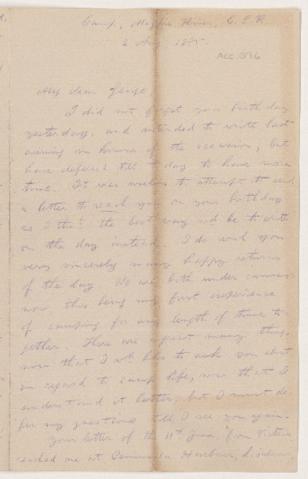 Camp, Maple River, C.P.R
2 Aug. 188
ACC. 1576
My dear George
I did not forget your birthday
yesterday, and intended to write last
evening in honour of the occasion, but
have deferred till to day to have more
time. It was useless to attempt to send
a letter to reach you on your birthday
so I tho't the best way wd be to write
on the day instead. I do wish you
very sincerely many happy returns
of the day. We are both under canvas
now this being my first experience
of camping for any length of time to-
gether. There are a great many things
now that I wd like to ask you about
in regard to camp life, now that I
understand it better, but I must de-
fer my questions till I see you again.
Your letter of the 11th June from Victoria
reached me at Harbour,